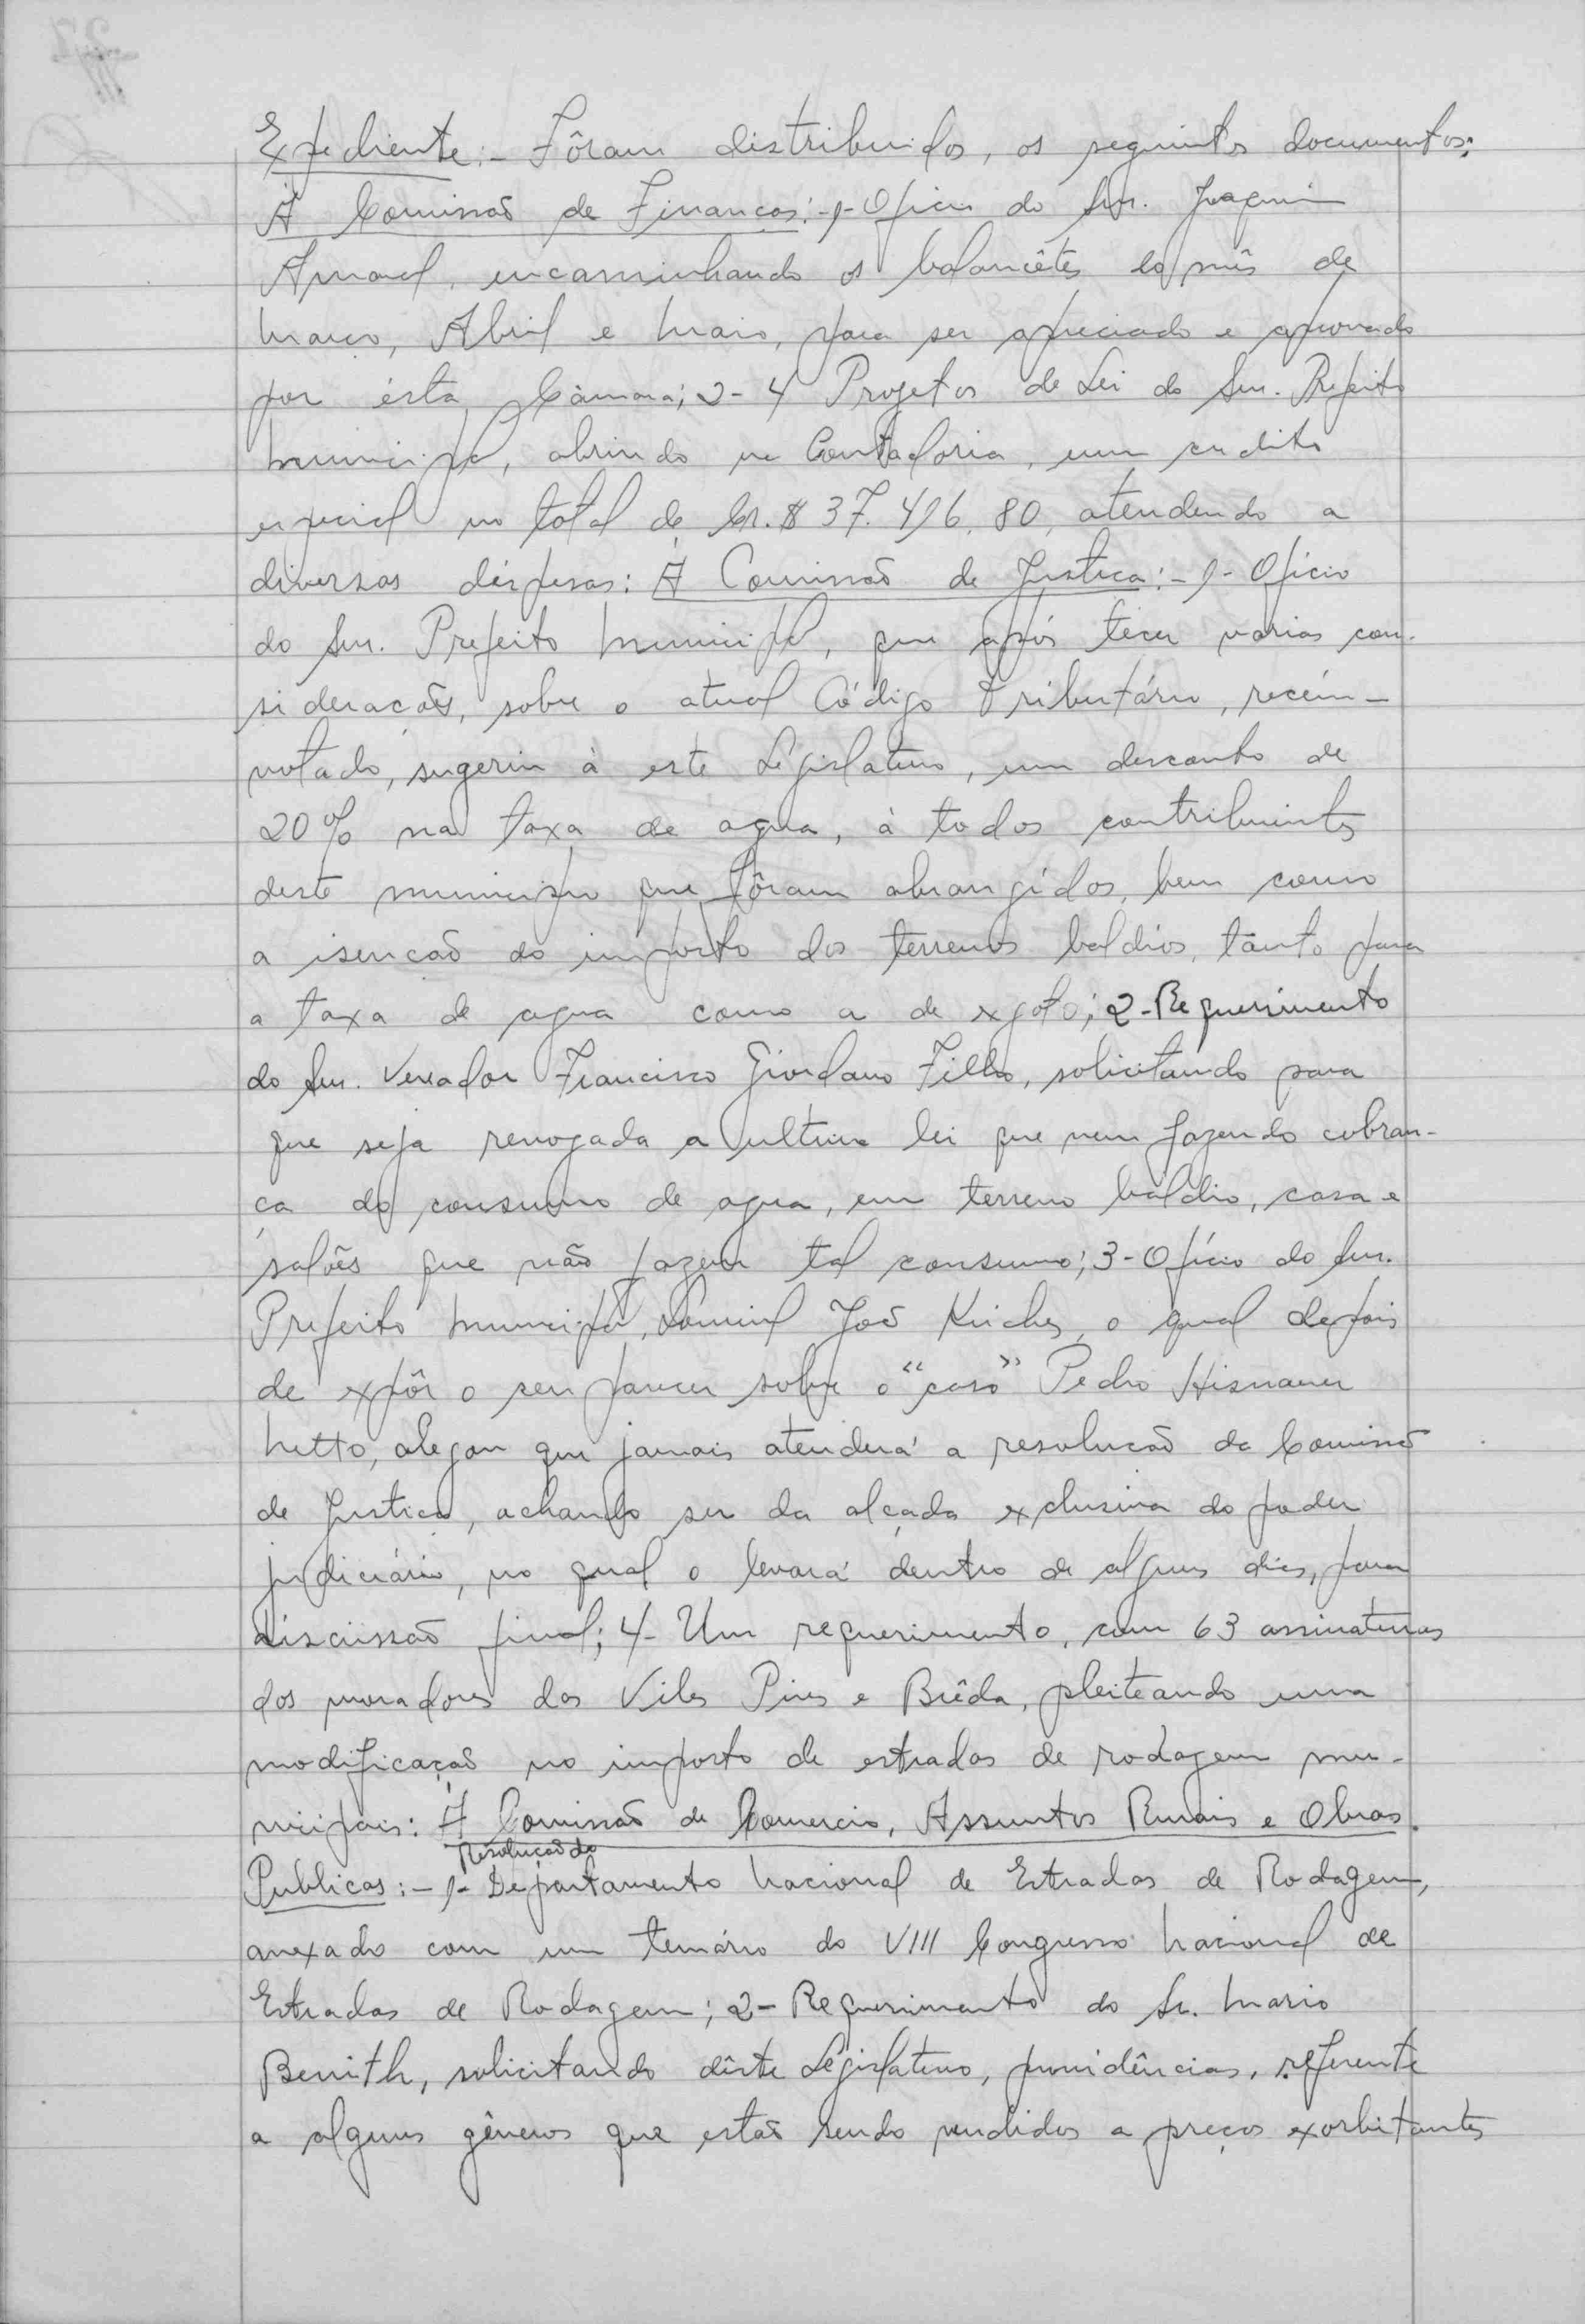 Expediente:- Fôram distribuidos, os seguintes documentos:
À Comissão de Finanças:-1-Oficio do Snr. Joaquim
Amaral, encaminhando os balancêtes do mês de
Março, Abril e Maio, para ser apreciado e aprovado
por ésta Câmara; 2- 4 Projetos de Lei do Snr. Prefeito
Municipal, abrindo na Contadoria, um credito
especial no total de Cr.$ 37.416,80, atendendo a
diversas déspesas: À Comissão de Justiça:-1- Oficio
do Snr. Prefeito Municipal, que após tecer varias con-
siderações, sobre o atual Código Tributário, recém-
votado, sugerin à este Legislativo, um desconto de
20% na taxa de agua, à todos contribuintes
deste municipio que fôram abrangídos, bem como
a isenção do imposto dos terrenos baldios, tanto para
a taxa de agua como a de exgoto; 2-Requerimento
do Snr. Vereador Francisco Giordano Filho, solicitando para
que seja revogada a ultima lei que vem fazendo cobran-
ça do consumo de agua, em terreno baldio, casa e
salões que não fazem tal consumo; 3-Ofício do Snr.
Prefeito Municipal, João o qual depois
de expôr o seu parecer sobre o "caso" Pedro
Netto, alegou que jamais atenderá a resolução da Comissão
de Justica, achando ser da alçada exclusiva do poder
judiciário, no qual o levará dentro de alguns dias, para
discussão final; 4- Um requerimento, com 63 assinaturas
dos moradores das Vilas Pires e Brêda, pleiteando uma
modificação no imposto de estradas de rodagem mu-
nicipais: À Comissão de Comercio, Assuntos Rurais e Obras
Resolução do
Publicas:-1- Departamento Nacional de Estradas de Rodagem,
anexado com um temário do VIII Congresso Nacional de
Estradas de Rodagem; 2- Requerimento do Sr. Mario
Benith, solicitando dêste Legislativo, providências, referente
a alguns gêneros que estão sendo vendidos a preços exorbitantes